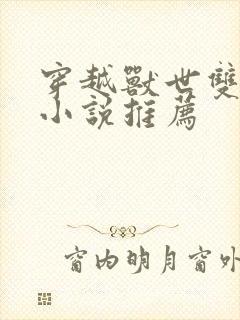 穿越獸世雙
小说推薦
窗内明月窗外